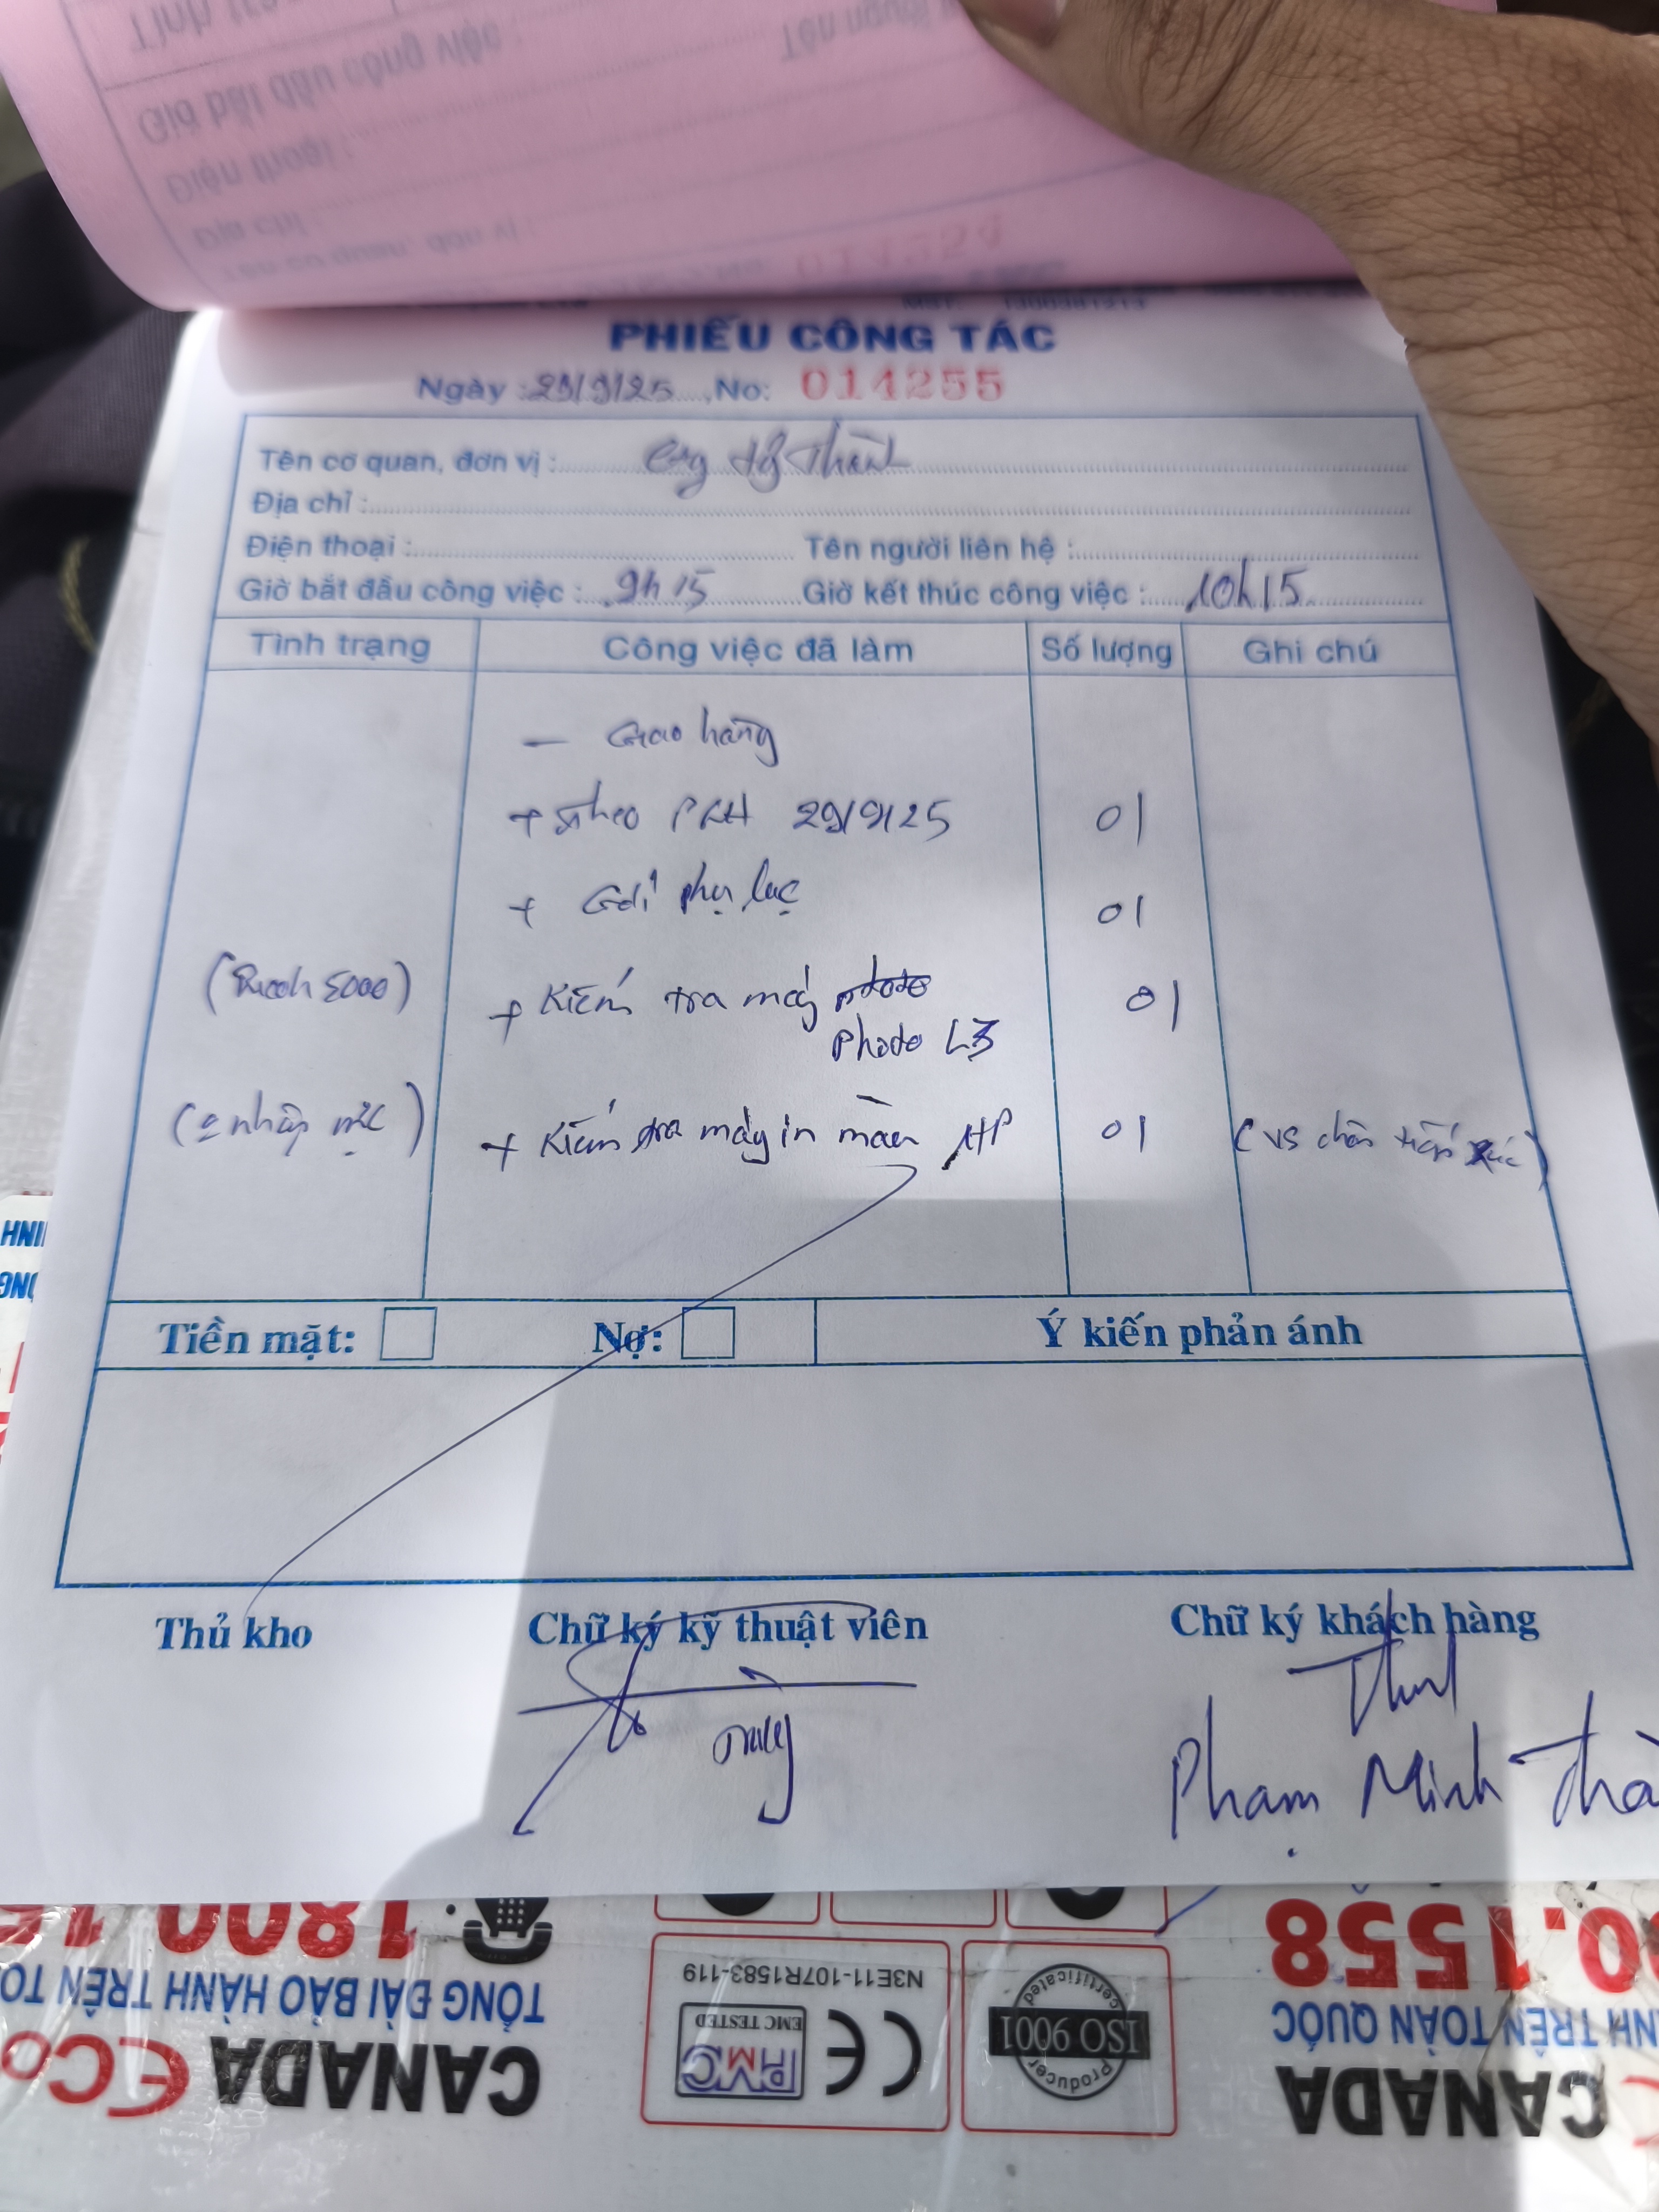 PHIẾU CÔNG TÁC
Ngày : 29/9/25 , No: 014255
Tên cơ quan, đơn vị :
Địa chỉ :
Điện thoại : Tên người liên hệ :
Giờ bắt đầu công việc : 9h15 Giờ kết thúc công việc : 10h15
Tình trạng Công việc đã làm Số lượng Ghi chú
- Giao hàng
+ Theo PGH 29/9/25 01
+ Gởi phụ lục 01
(Ricoh 5000) + Kiểm tra máy photo 01
photo L3
nhập mực) + Kiểm tra máy in màu HP 01 (VS chân tiếp xúc)
Tiền mặt: Nợ: Ý kiến phản ánh
Thủ kho Chữ ký kỹ thuật viên Chữ ký khách hàng
Phạm Minh
N3E11-107R1583-119
EMC TESTED
PMC
CE
ISO 9001
Producer
certificated
0.1558
TRÊN TOÀN QUỐC
CANADA
1800
TỔNG ĐÀI BẢO HÀNH TRÊN TO
CANADA ECO